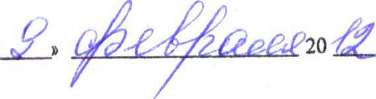 9 » февраля 2012